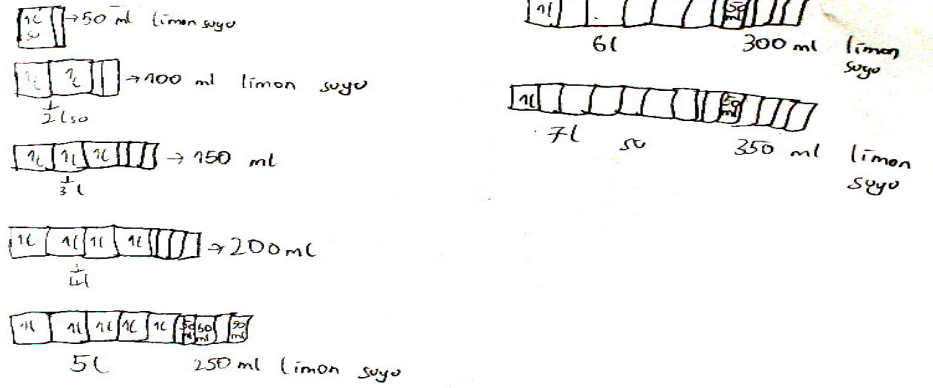 1l → 50 ml limon suyu
su
1l 1l → 100 ml limon suyu
2l su
1l 1l 1l → 150 ml
3l
1l 1l 1l 1l → 200 ml
4l
1l 1l 1l 1l 1l 50 ml 50 ml 50 ml
5l 250 ml limon suyu
1l 50 ml
6l 300 ml limon suyu
1l 50 ml
7l su 350 ml limon suyu